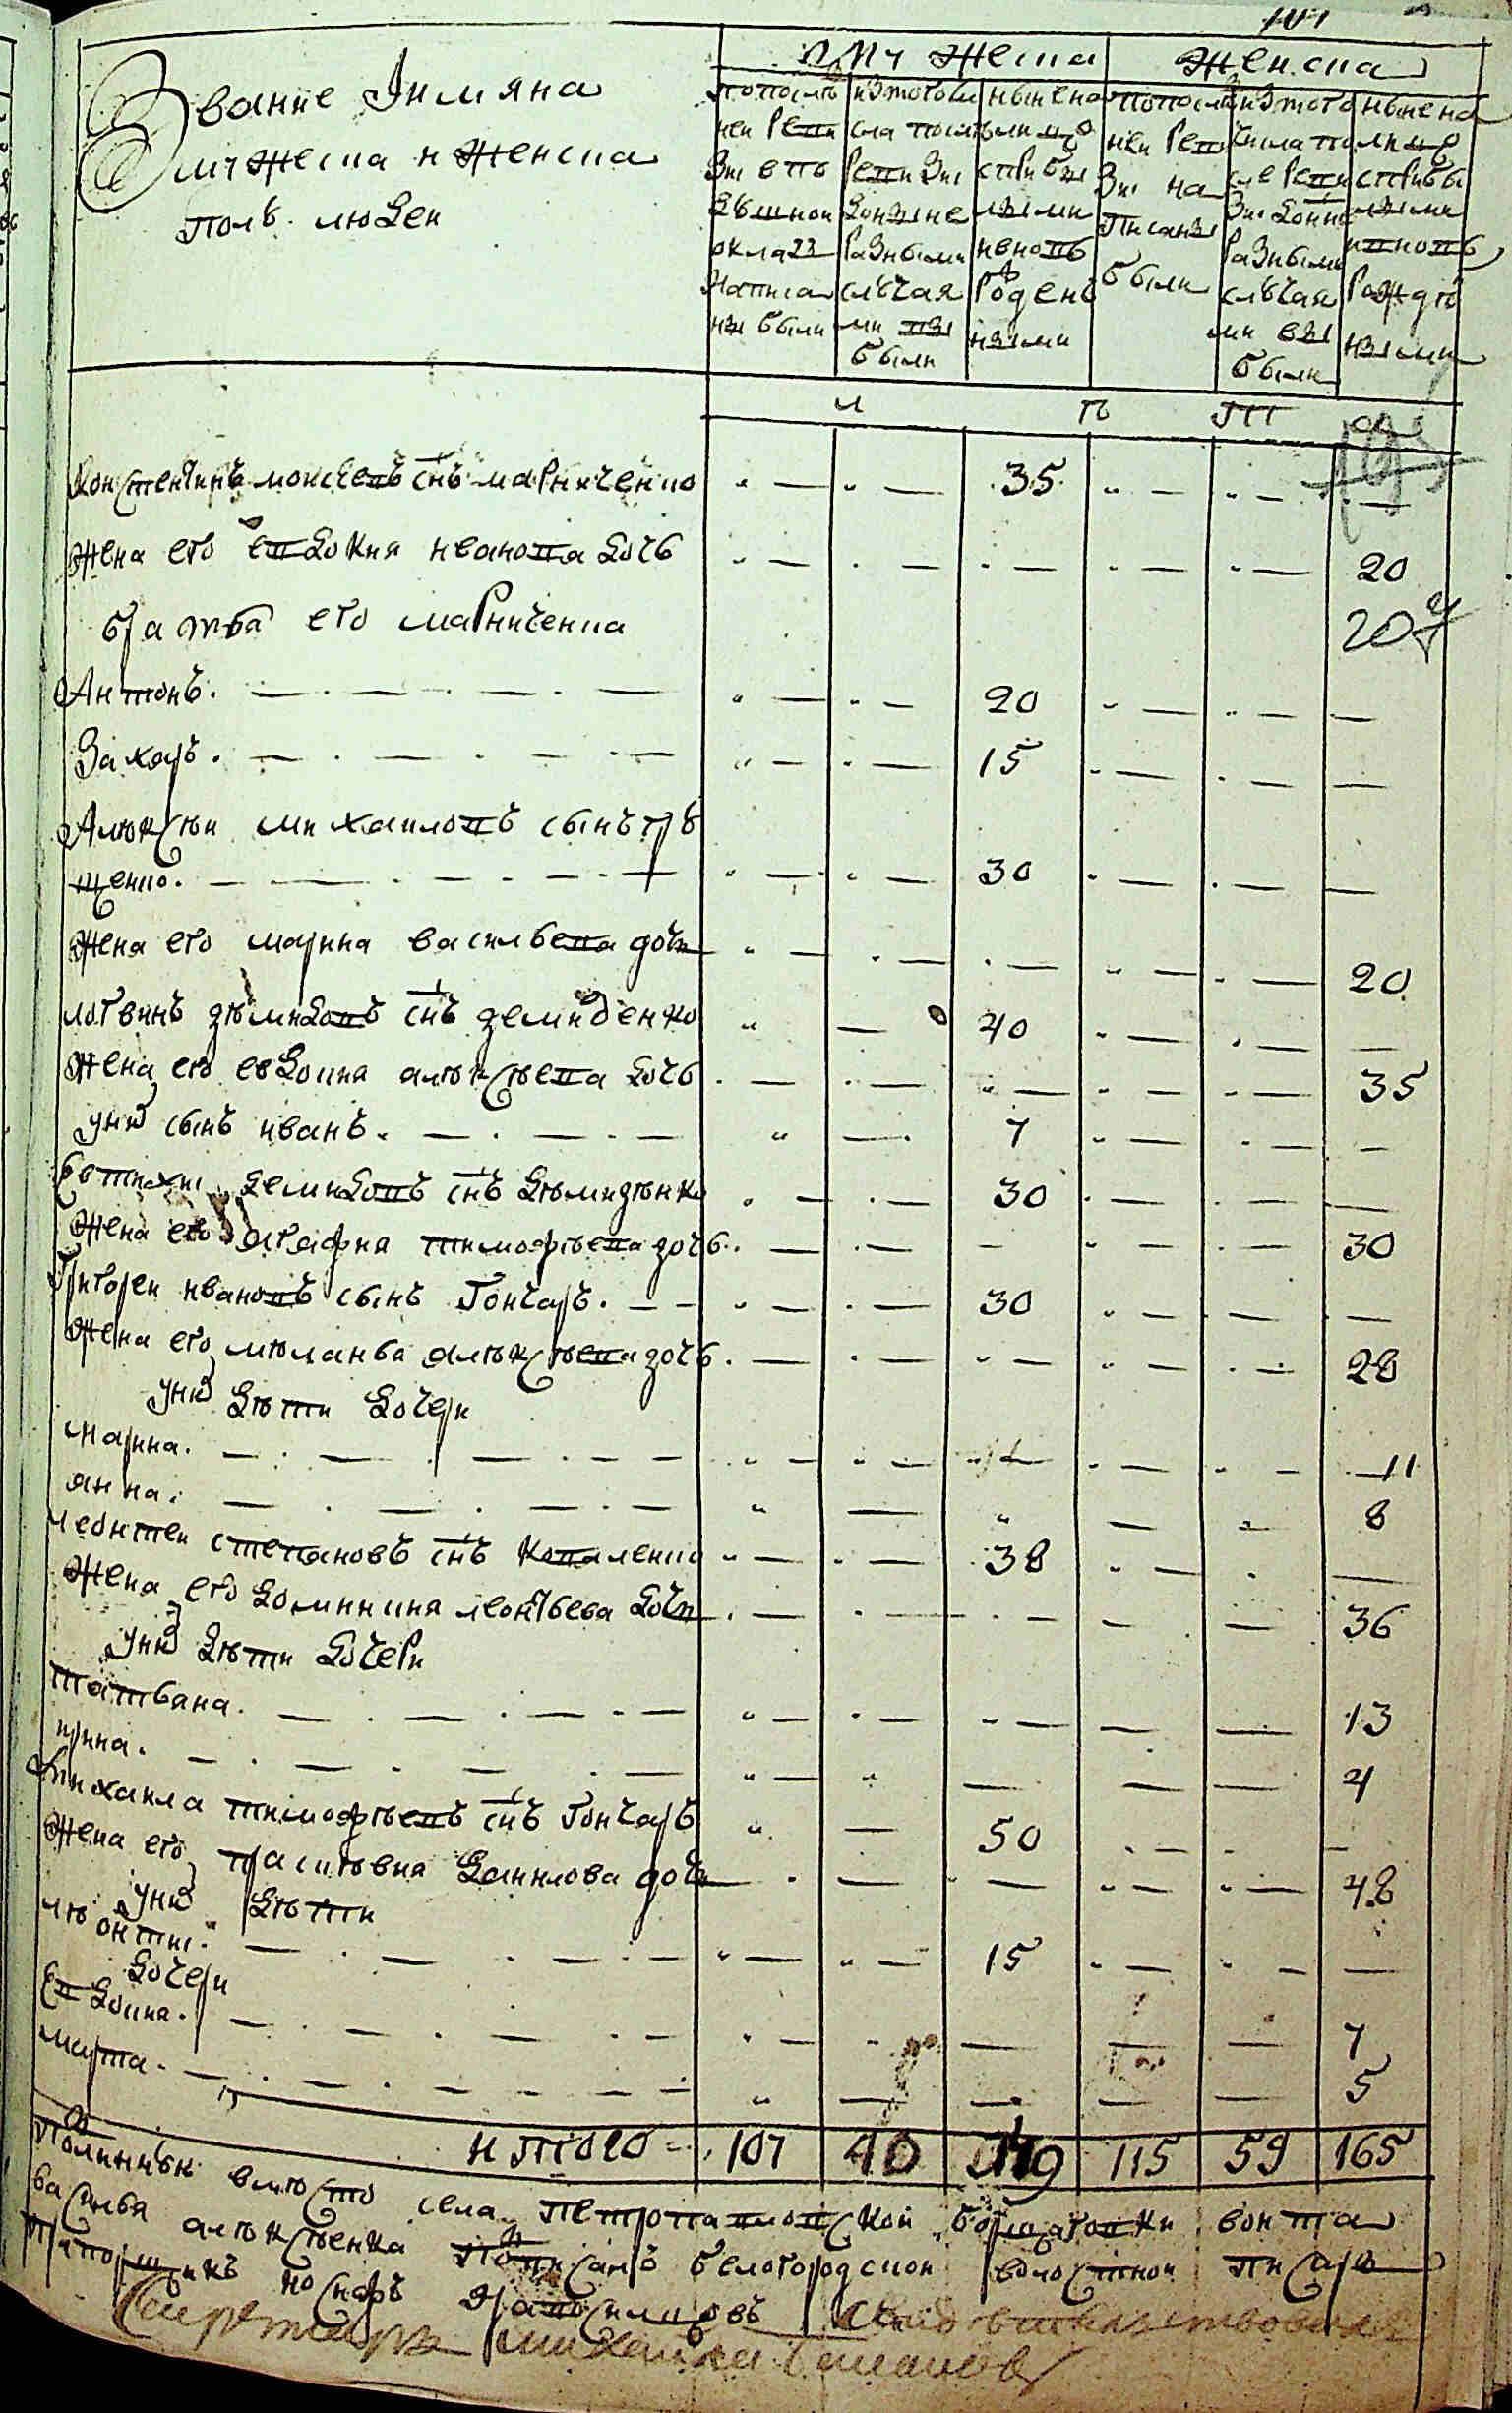 ЗваниеIимяна
Мужеска и Женска
полъ людей
Мужеска
Женска
попослѣдней Ревизiи в подушной оклад написаны были
изтого числа после Ревизiи доныне разными случаями выбыли
ныне налицо с прибылыми и вновь рожденными
попоследней Ревизiи написаны были
изтого числа после Ревизiи донынѣ разными случаями выбыли
ныне налицо с прибылыми и вновь рожденными
Константинъ моисеевъ снъ мариченко 35
Жена его евдокия иванова дочь 20
братья его мариченка
207
Антонъ. 20
Захаръ. 15
Алѣксѣй михаиловъ сынъ грѣ
щенко. 30
Жена его марина васильева дочь 20
логвинъ дѣмидовъ снъ демиденко 40
Жена его евдокия алѣксѣева дочь 35
у них сынъ иванъ. 7
Евтихiй демидовъ снъ дѣмидѣнко 30
Жена его агафия тимофѣева дочь. 30
Григореи ивановъ сынъ Гончаръ. 30
Жена его мѣланья алѣксѣева дочь. 28
у них дѣти дочери
марина. 11
анна. 8
леонтеи степановъ снъ коваленко 38
Жена его домникия леонтьева дочь 36
у них дѣти дочери
татьяна. 13
ирина. 4
Михаила тимофѣевъ снъ Гончаръ 50
Жена его, прасковия данилова дочь 48
у них дѣти
лѣонтiи. 15
дочери
Евдокия. 7
марта. 5
итого 107 40 119 115 59 165
вмѣсто села Петропавловской Борщаговки воита
василья алѣксѣенка подписалъ белогородскои волостнои писарь
Прапорщикъ
Секретарь михаила